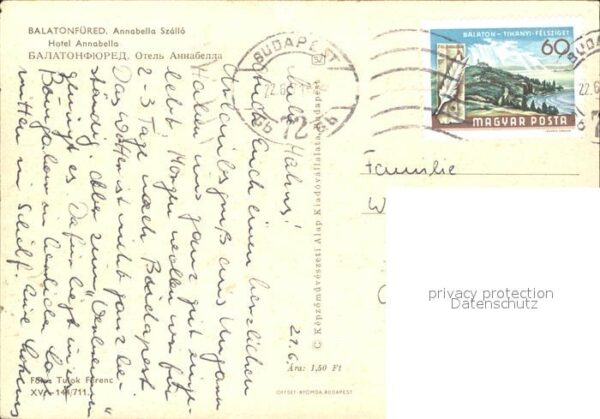 BALATONFÜRED. Annabella Szálló
Hotel Annabella
БАЛАТОНФЮРЕД. Отель Аннабелла
BUDAPEST
72
BALATON - TIHANYI-FÉLSZIGET
60f
MAGYAR POSTA
Familie
W
privacy protection
Datenschutz
Euch einen herzlichen
Urlaubsgruß aus Ungarn
Haben uns ganz gut einge-
lebt. Morgen wollen wir für
2-3 Tage nach Budapest.
Das Wetter ist nicht ganz be-
ständig. Aber zum
genügt es. Dafür liegt unser
Bungalow in herrlicher
mitten im Schilf. Eine
22.6.
© Képzőművészeti Alap Kiadóvállalata, Budapest
Ára: 1,50 Ft
Fotó: Tulok Ferenc
XVI-144/711
OFFSET-NYOMDA, BUDAPEST